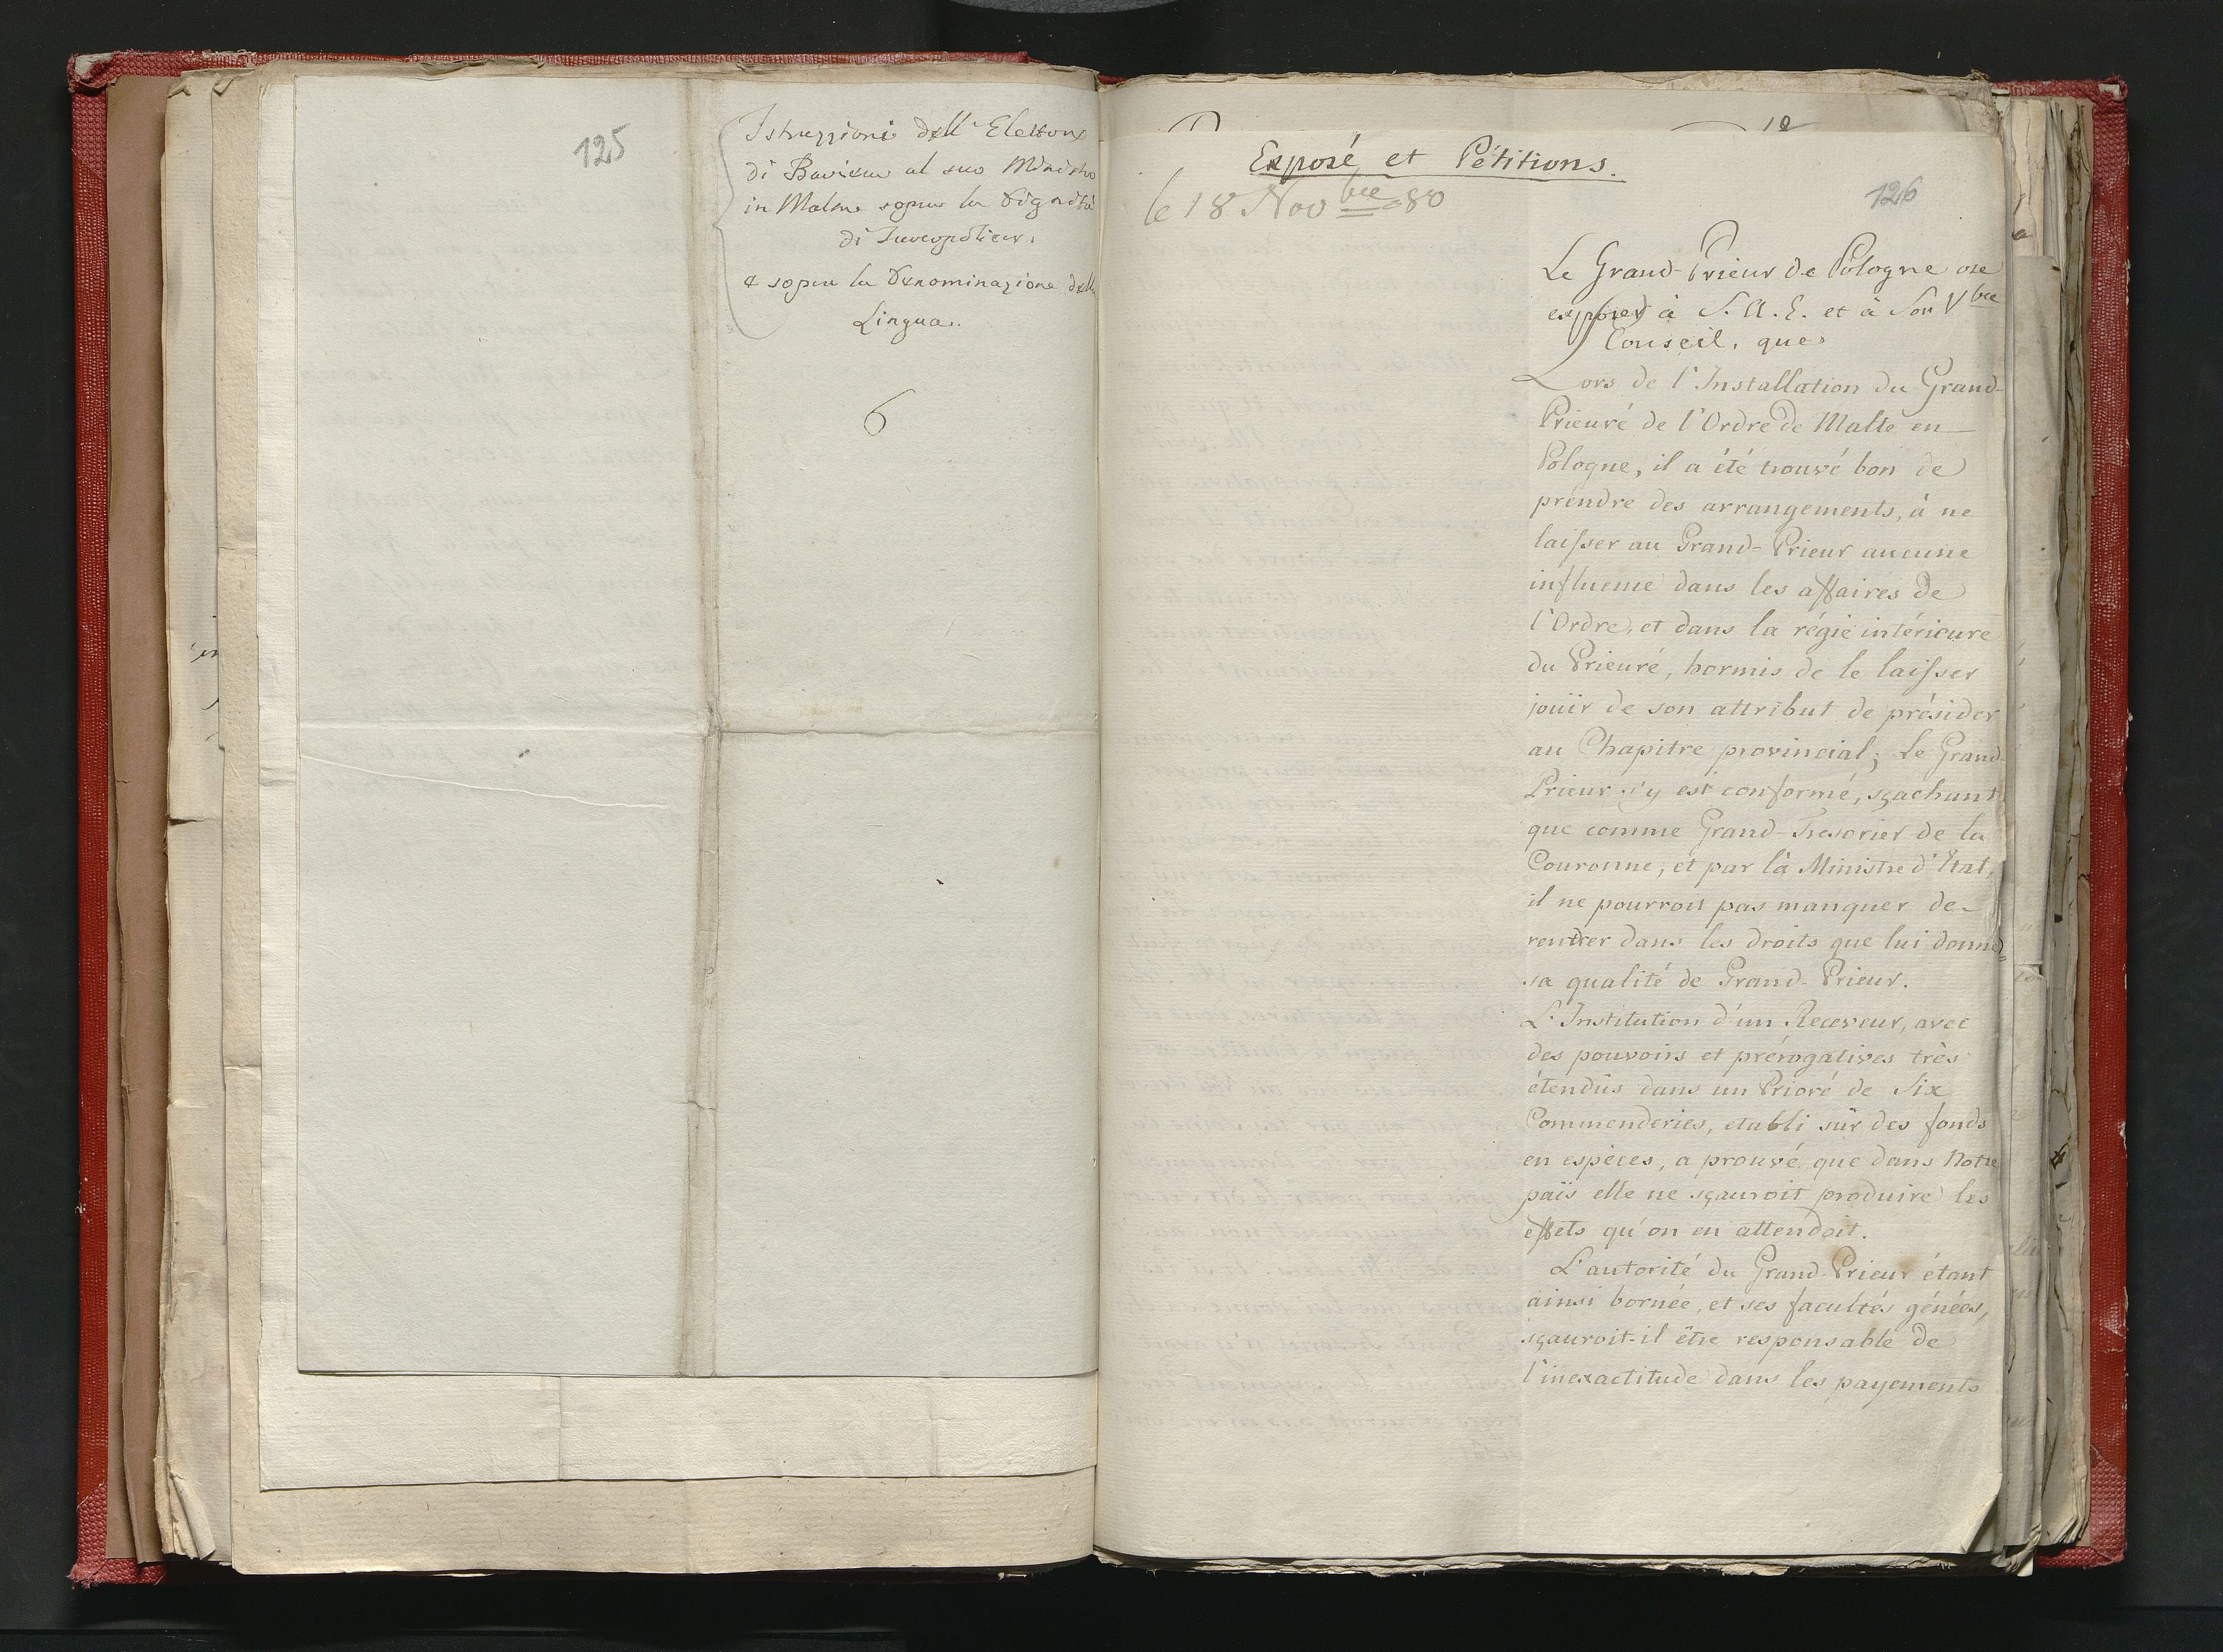 125
Istruzzioni dell' Elettore
di Baviera al suo Ministro
in Malta sopra la dignità
di Turcopolier.
e sopra la denominazione della
Lingua.
6
12
Exposé et Pétitions.
le 18 Nov bre 80
126
Le Grand-Prieur de Pologne ose
exposer à S. A. E. et à Son Vble
Conseil, que
Lors de l'Installation du Grand-
Prieuré de l'Ordre de Malte en
Pologne, il a été trouvé bon de
prendre des arrangements, à ne
laisser au Grand-Prieur aucune
influence dans les affaires de
l'Ordre, et dans la régie intérieure
du Prieuré, hormis de le laisser
jouïr de son attribut de présider
au Chapitre provincial; Le Grand-
Prieur s'y est conformé, sçachant
que comme Grand-Tresorier de la
Couronne, et par là Ministre d'Etat,
il ne pourroit pas manquer de
rentrer dans les droits que lui donne
sa qualité de Grand-Prieur.
L'Institution d'un Receveur, avec
des pouvoirs et prérogatives très
étendûs dans un Prioré de Six
Commenderies, etabli sûr des fonds
en espèces, a prouvé que dans Notre
païs elle ne sçauroit produire les
effets qu'on en attendoit.
L'autorité du Grand-Prieur étant
ainsi bornée, et ses facultés génées,
sçauroit-il être responsable de
l'inexactitude dans les payements